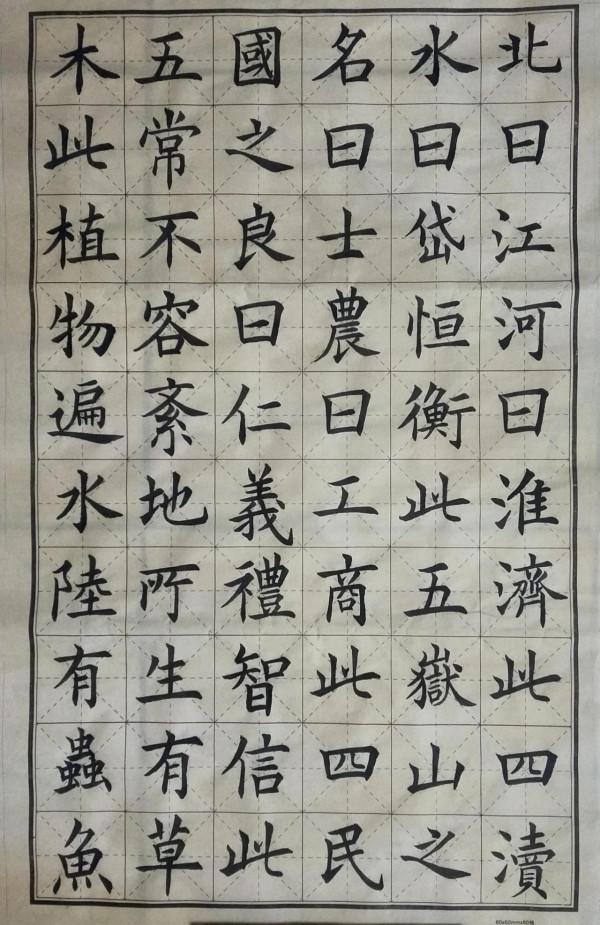 北曰江河曰淮濟此四瀆
水曰岱恒衡此五嶽山之
名曰士農曰工商此四民
國之良曰仁義禮智信此
五常不容紊地所生有草
木此植物遍水陸有蟲魚